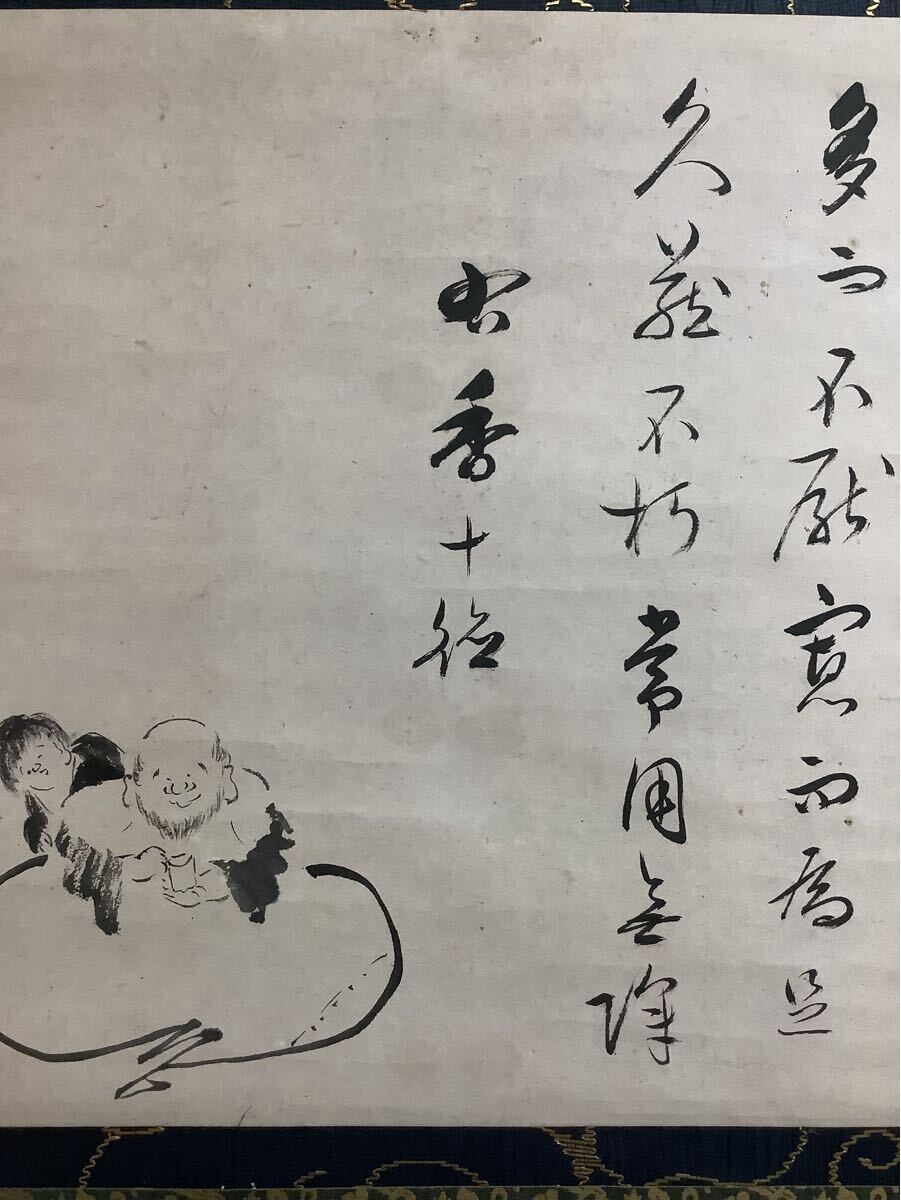 多而不厭寡而為足
久蔵不朽常用無障
右香十徳